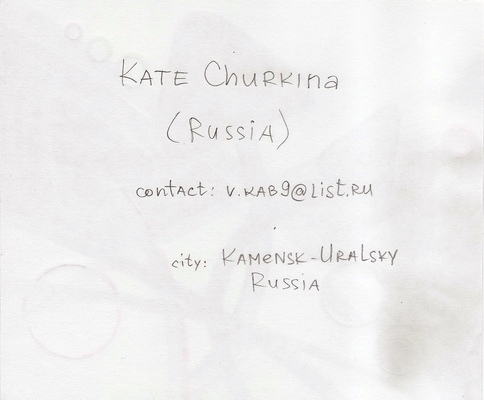 Kate Churkina
(Russia)
contact: v.kab9@list.ru
city: Kamensk-Uralsky
Russia